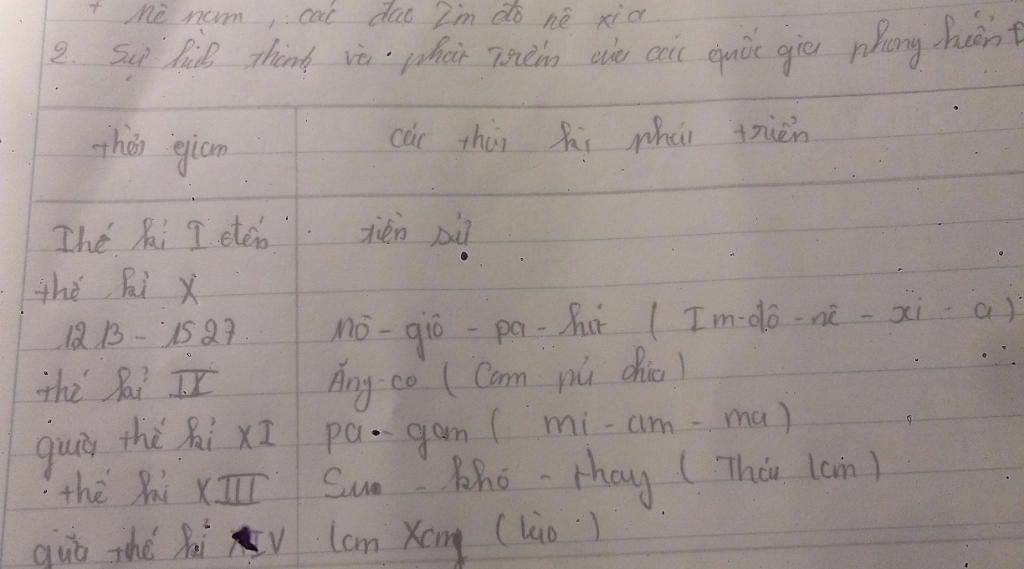 + Mê nam, các đảo In đô nê xi a
2. Sự hình thành và phát triển của các quốc gia phong kiến
thời gian các thời kì phát triển
Thế kỉ I đến tiền sử
thế kỉ X
1213 - 1527 Mô - giô - pa - hít (Im-đô-nê-xi-a)
thế kỉ IX Ăng-co (Cam pu chia)
giữa thế kỉ XI pa - gam (mi - am - ma)
thế kỉ XIII Su - khô - thay (Thái lan)
giữa thế kỉ XIV lam Xang (lào)